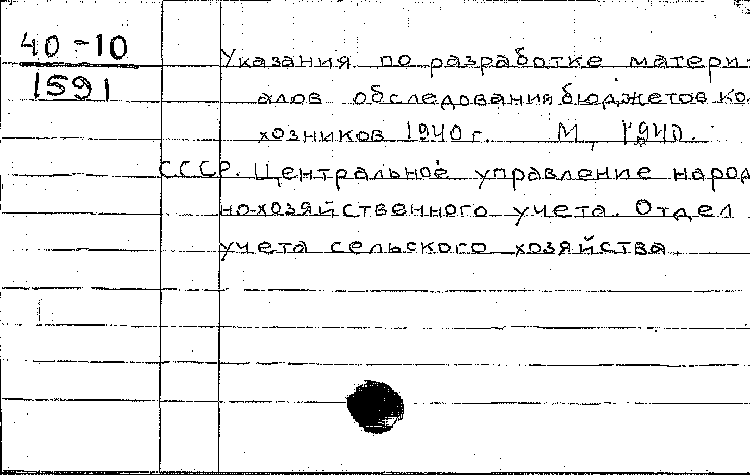 40-10
1591
Указания по разработке матери-
алов обследования бюджетов ко
хозников 1940 г. М, 1940.
СССР. Центральное управление народ
но-хозяйственного учета. Отдел
учета сельского хозяйства.